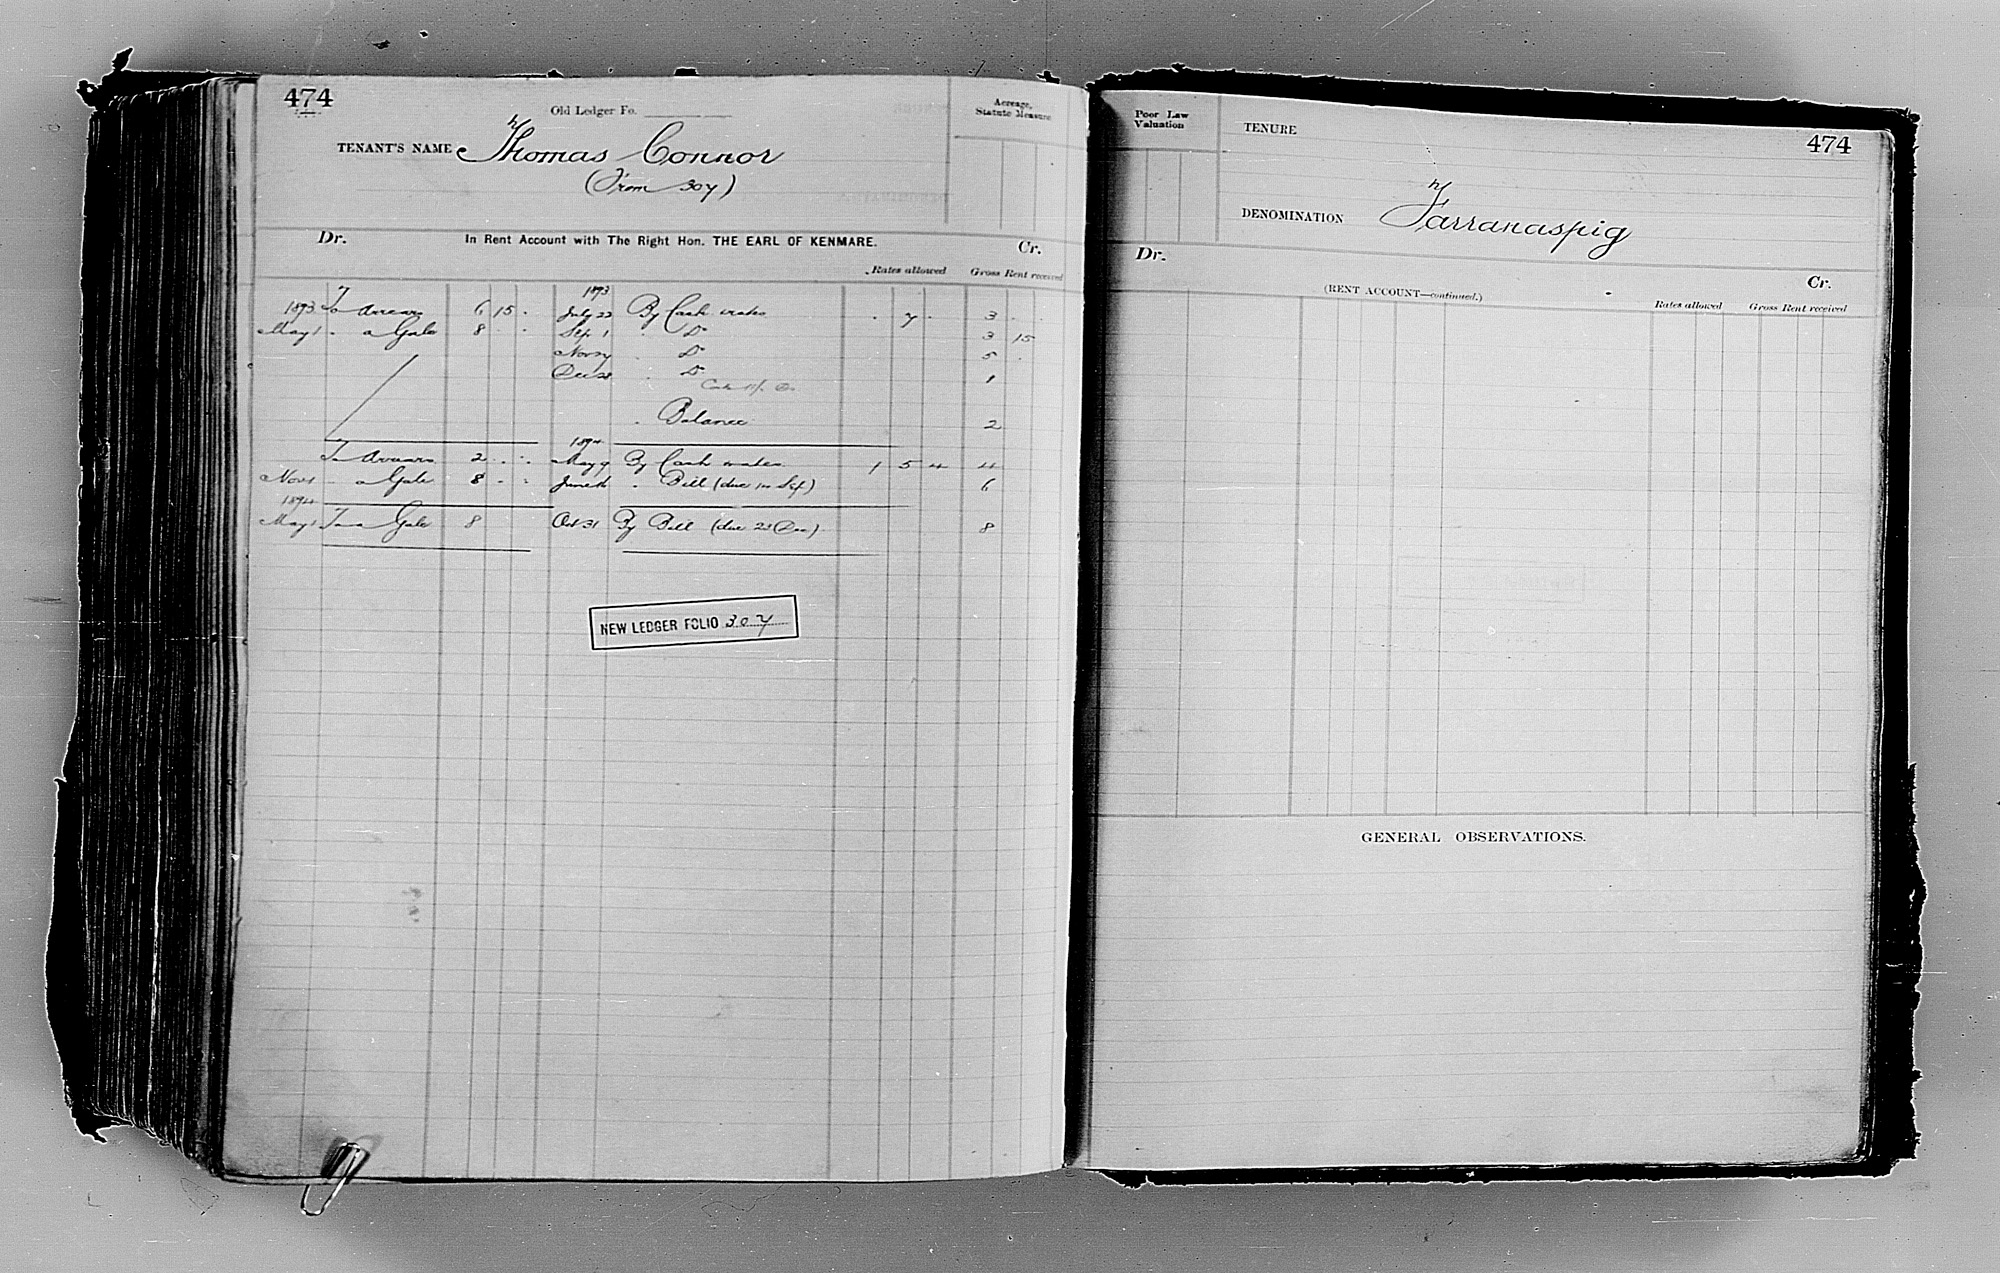 474
Old Ledger Fo.
Acreage, Statute Measure
TENANT'S NAME Thomas Connor
(From 307)
Dr. In Rent Account with The Right Hon. THE EARL OF KENMARE. Cr.
Rates allowed Gross Rent received
1893
1893 To Arrears 6 15 . July 22 By Cash & rates . 7 . 3 . .
May 1 . a Gale 8 . . Sep 1 . Do 3 15
Nov 7 . Do 5 .
Dec 21 . Do 1
Cash
. Balance 2
1894
To Arrears 2 . . May 9 By Cash & rates 1 5 4 4
Nov 1 . a Gale 8 . . June 16 . Bill (due 1n Sep) 6
1894
May 1 To a Gale 8 Oct 31 By Bill (due 23 Dec) 8
NEW LEDGER FOLIO 307
Poor Law Valuation
TENURE
474
DENOMINATION Farranaspig
Dr. Cr.
(RENT ACCOUNT—continued.)
Rates allowed Gross Rent received
GENERAL OBSERVATIONS.